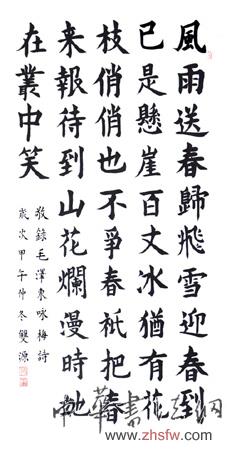 風雨送春歸飛雪迎春到
已是懸崖百丈冰猶有花
枝俏俏也不爭春衹把春
来報待到山花爛漫時她
在叢中笑
敬錄毛澤東咏梅詩
歲次甲午仲冬雙源
中華書法網
www.zhsfw.com